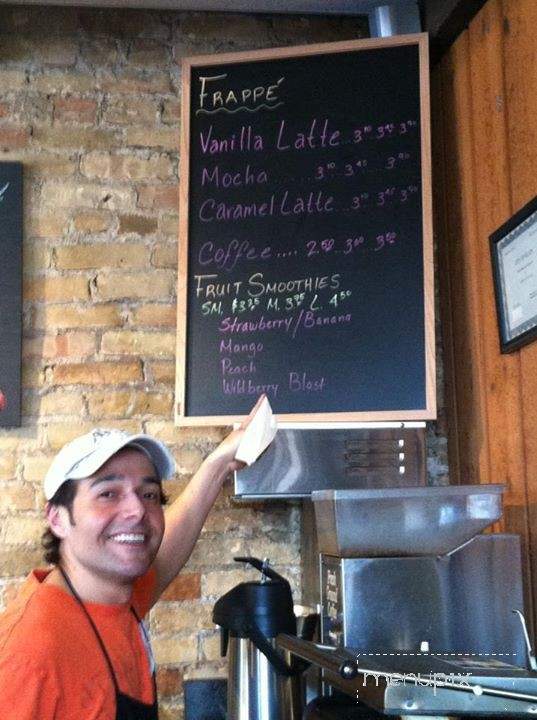 FRAPPÉ
Vanilla Latte 3¹⁰ 3⁴⁵ 3⁹⁰
Mocha .... 3¹⁰ 3⁴⁵ 3⁹⁰
Caramel Latte 3¹⁰ 3⁴⁵ 3⁹⁰
Coffee.... 2⁵⁰ 3⁰⁰ 3⁵⁰
FRUIT SMOOTHIES
SM. $3²⁵ M. 3⁷⁵ L. 4⁵⁰
Strawberry/Banana
Mango
Peach
Wildberry Blast
menupix